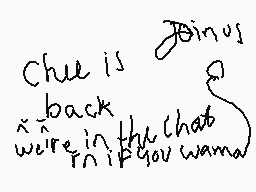 Join us
Chee is
back
^_^
we're in the chat
rn if you wanna